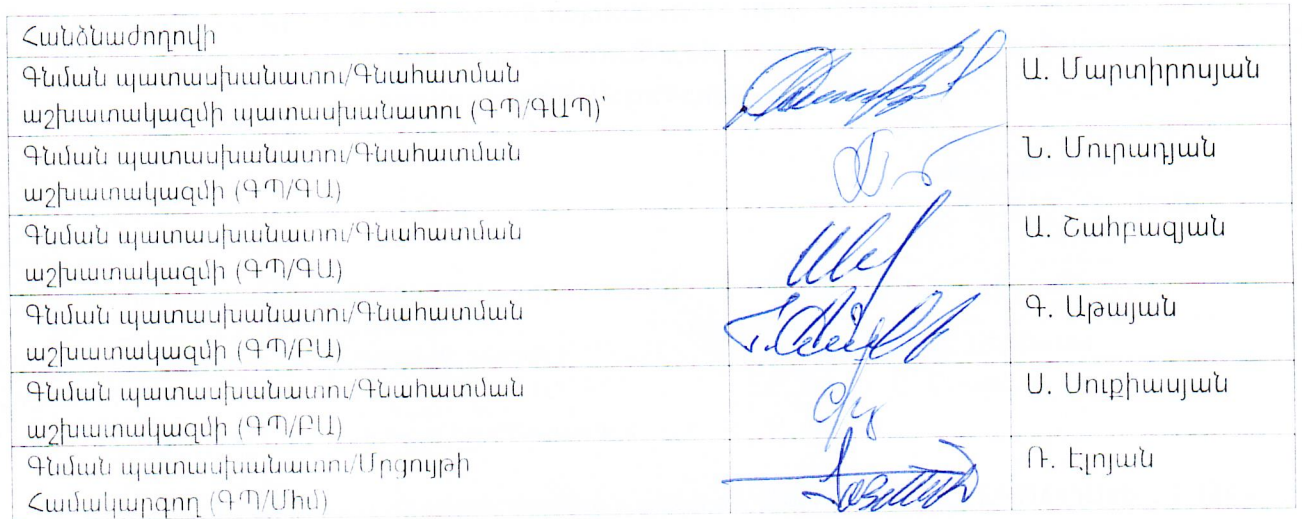 Հանձնաժողովի
Գնման պատասխանատու/Գնահատման
աշխատակազմի պատասխանատու (ԳՊ/ԳԱՊ)՝
Ա. Մարտիրոսյան
Գնման պատասխանատու/Գնահատման
աշխատակազմի (ԳՊ/ԳԱ)
Ն. Մուրադյան
Գնման պատասխանատու/Գնահատման
աշխատակազմի (ԳՊ/ԳԱ)
Ա. Շահբազյան
Գնման պատասխանատու/Գնահատման
աշխատակազմի (ԳՊ/ԲԱ)
Գ. Աթայան
Գնման պատասխանատու/Գնահատման
աշխատակազմի (ԳՊ/ԲԱ)
Ս. Սուքիասյան
Գնման պատասխանատու/Մրցույթի
Համակարգող (ԳՊ/Միմ)
Ռ. Էլոյան